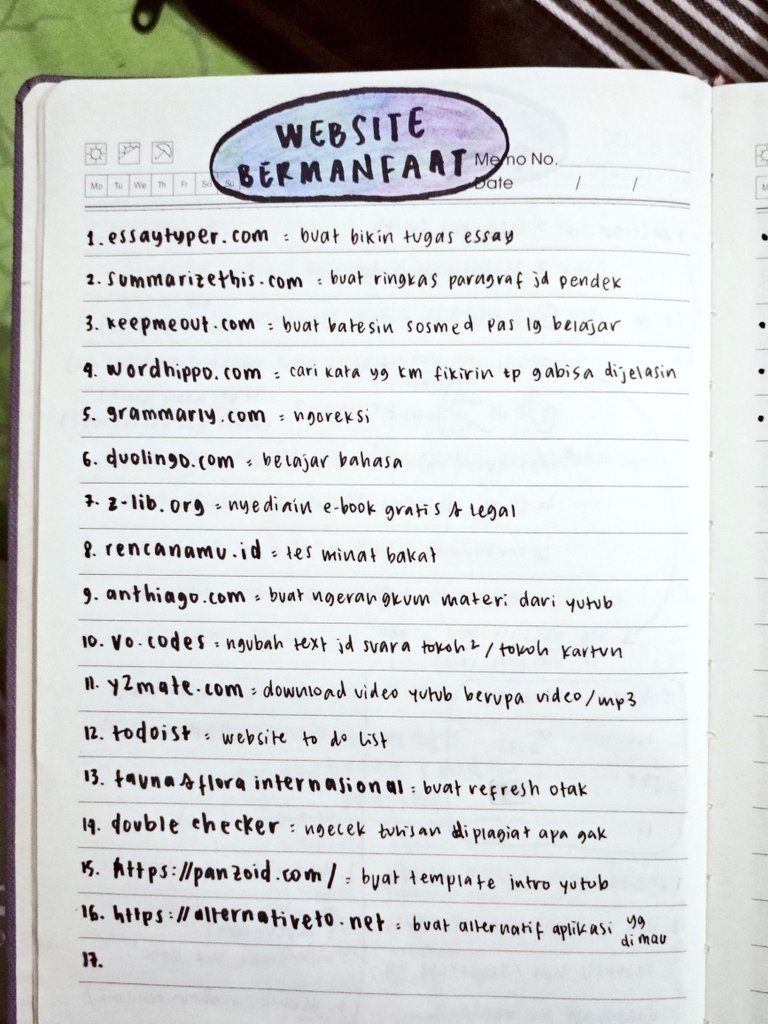 WEBSITE
BERMANFAAT
Memo No.
Mo Tu We Th Fr Sa Su
Date / /
1. essaytyper.com = buat bikin tugas essay
2. summarizethis.com = buat ringkas paragraf jd pendek
3. keepmeout.com = buat batesin sosmed pas lg belajar
4. wordhippo.com = cari kata yg km fikirin tp gabisa dijelasin
5. grammarly.com = ngoreksi
6. duolingo.com = belajar bahasa
7. z-lib.org = nyediain e-book gratis & legal
8. rencanamu.id = tes minat bakat
9. anthiago.com = buat ngerangkum materi dari yutub
10. vo.codes = ngubah text jd suara tokoh²/tokoh kartun
11. y2mate.com = download video yutub berupa video/mp3
12. todoist = website to do list
13. fauna & flora internasional = buat refresh otak
14. double checker = ngecek tulisan diplagiat apa gak
15. https://panzoid.com/ = buat template intro yutub
16. https://alternativeto.net = buat alternatif aplikasi yg
di mau
17.